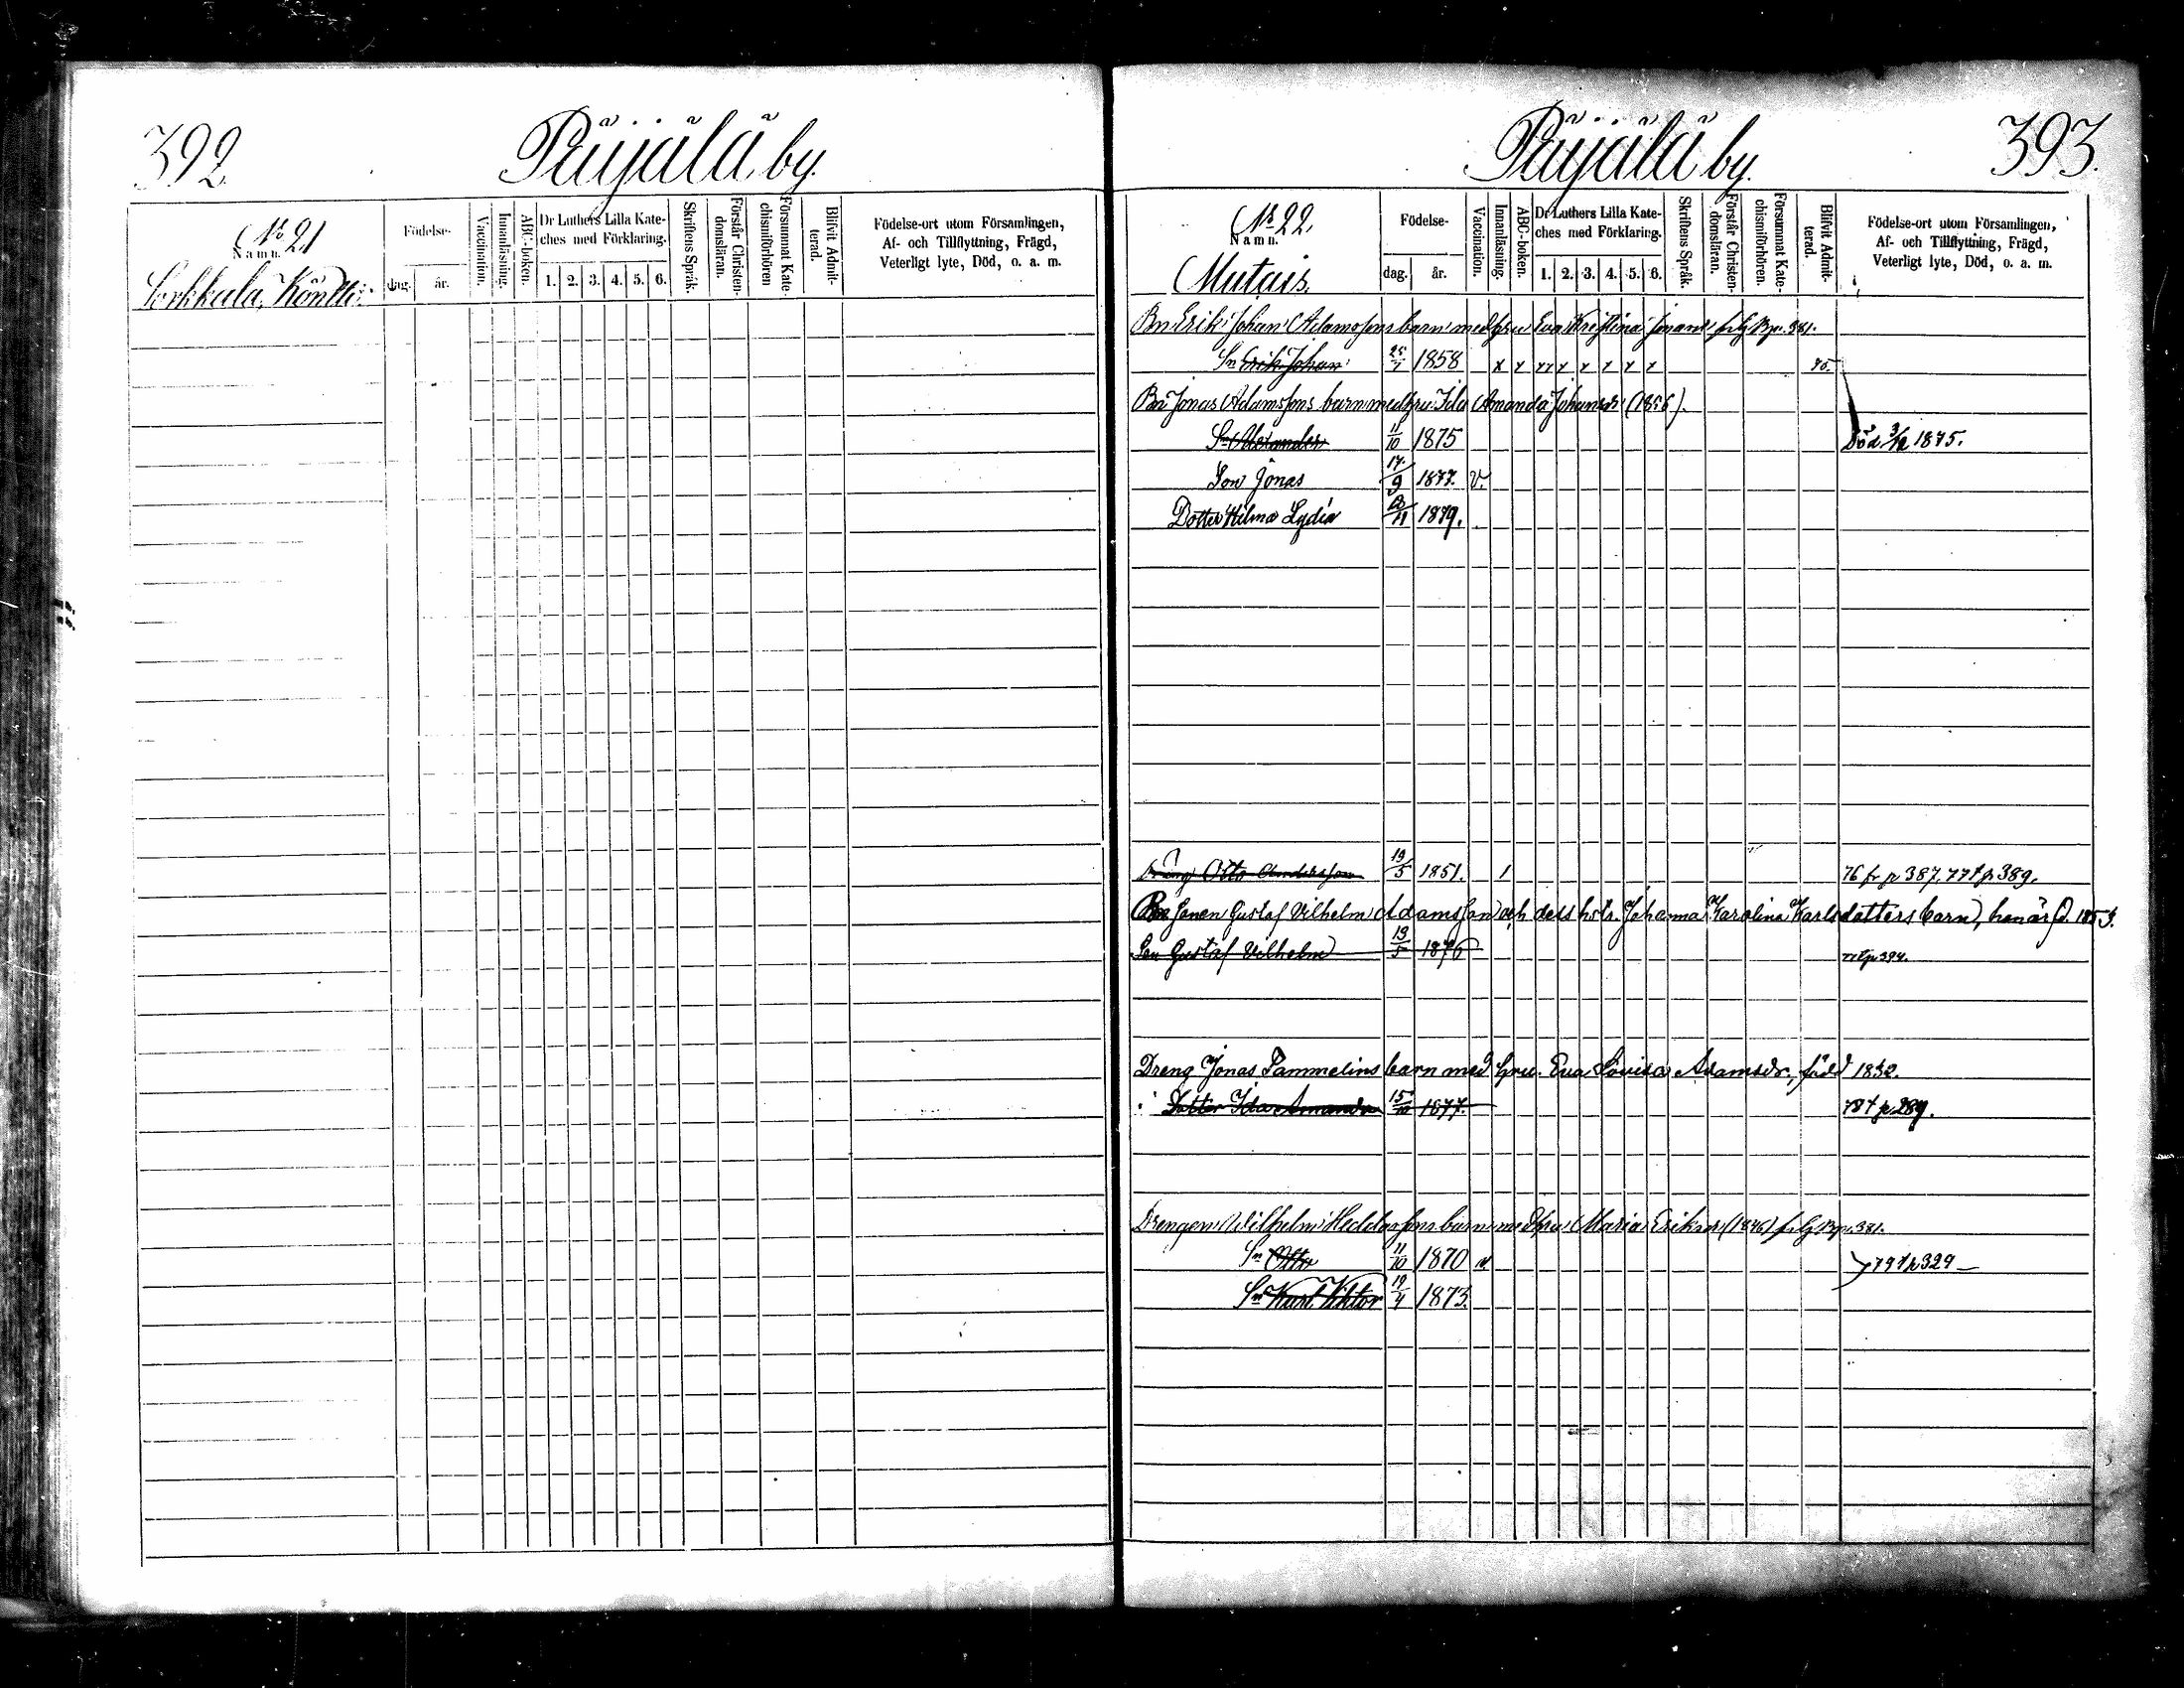 392.
Päijälä by.
No 21
Namn.
Sorkkala, Köntti
Födelse-
dag.
år.
Vaccination.
Innanläsning.
ABC-boken.
Dr Luthers Lilla Kate-
ches med Förklaring.
1. 2. 3. 4. 5. 6.
Skriftens Språk.
Förstår Christen-
domsläran.
Försummat Kate-
chismiförhören
Blifvit Admit-
terad.
Födelse-ort utom Församlingen,
Af- och Tillflyttning, Frägd,
Veterligt lyte, Död, o. a. m.
Päijälä by.
393.
No 22.
Namn.
Mutais.
Födelse-
dag.
år.
Vaccination.
Innanläsning.
ABC-boken.
Dr Luthers Lilla Kate-
ches med Förklaring.
1. 2. 3. 4. 5. 6.
Skriftens Språk.
Förstår Christen-
domsläran.
Försummat Kate-
chismiförhören.
Blifvit Admit-
terad.
Födelse-ort utom Församlingen,
Af- och Tillflyttning, Frägd,
Veterligt lyte, Död, o. a. m.
Bn Erik Johan Adamssons barn med hru Eva Kristina 381.
Sn Erik Johan 1858 x x xx x x x x x 75.
Bn Jonas Adamssons barn med hru Ida Amanda Johansdr (1856).
Sn Alexander 11/10 1875 Död 3/12 1875.
Son Jonas 17/9 1877. v.
Dotter Hilma Lydia 1879.
Dräng Otto Andersson 19/5 1851. 1 76 fr p 387. 77 t p 389.
Gustaf Vilhelm Adamsson och dess hstr. Johanna Karolina Karlsdotters barn,
Son Gustaf Vilhelm 19/5 1876 394.
Dreng Jonas Tammelins barn med hru. Eva Lovisa Adamsdr., född 1852.
Dotter Ida Amanda 15/10 1877. 78 t p 289.
Drengen Wilhelm barn med hru Maria Eriksdr (1846) 381.
Sn Otto 11/10 1870 v
79 t p 329
Sn Karl Viktor 19/4 1873.